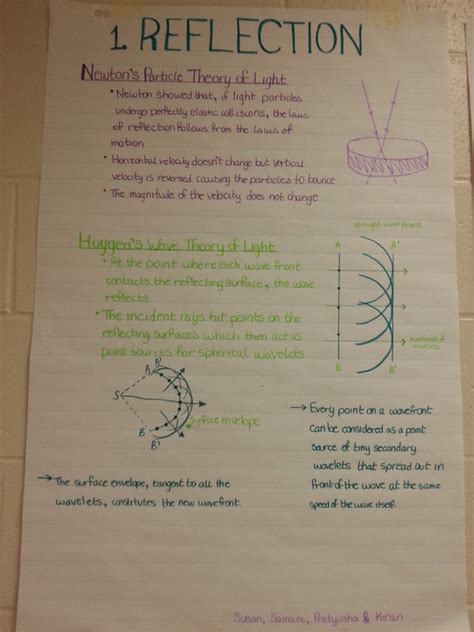 1. REFLECTION
Newton's Particle Theory of Light
• Newton showed that, if light particles
undergo perfectly elastic collisions, the laws
of reflection follows from the laws of
motion
• Horizontal velocity doesn't change but vertical
velocity is reversed causing the particles to bounce
• The magnitude of the velocity does not change
Huygen's Wave Theory of Light
• At the point where each wave front
contacts the reflecting surface, the wave
reflects
• The incident rays hit points on the
reflecting surfaces which then act as
point sources for spherical wavelets
straight wave front
A A'
B B'
wavelets
A'
A
S
B
B'
surface envelope
→ Every point on a wavefront
can be considered as a point
source of tiny secondary
wavelets that spread out in
front of the wave at the same
speed of the wave itself.
→ The surface envelope, tangent to all the
wavelets, constitutes the new wavefront.
Susan, Pratyusha & Kiran